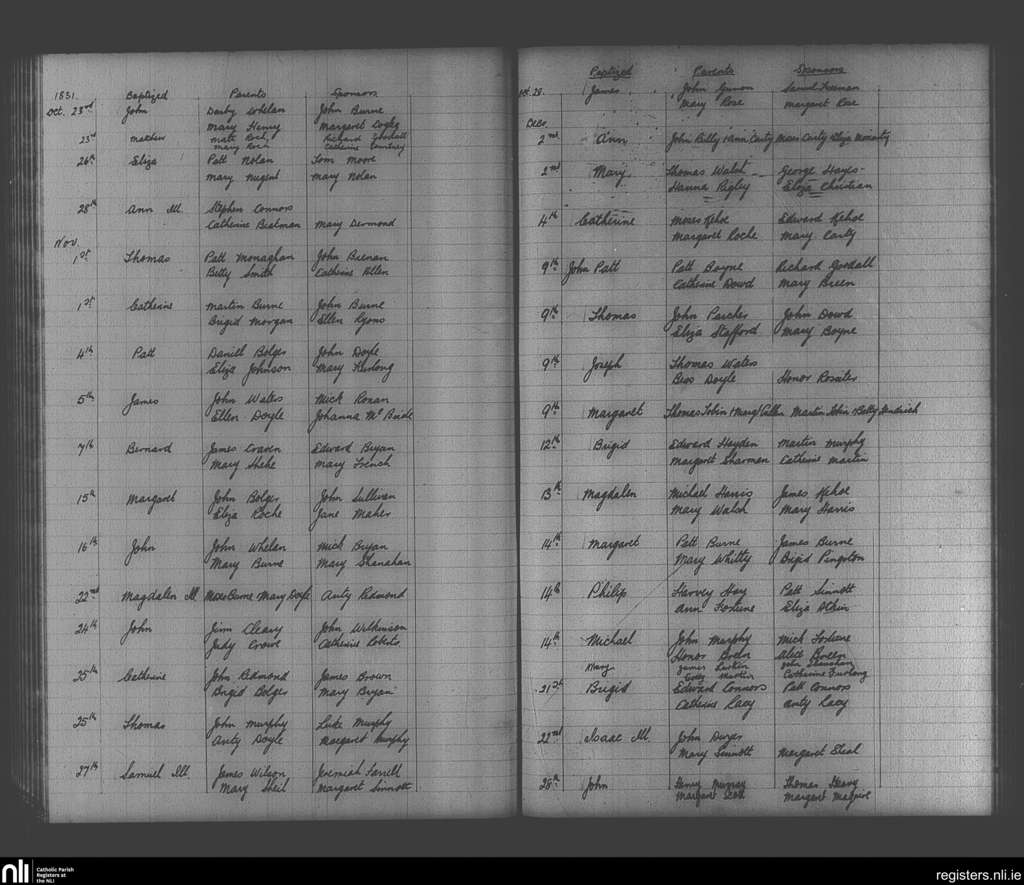 1831. Baptized Parents Sponsors
Oct. 23rd John Darby Whelan John Burne
Mary Henry Margaret
23rd Matt Roch Richard
Mary Roch Catherine Courtney
26th Eliza Patt Nolan Tom Moore
Mary Nugent Mary Nolan
28th Ann Ill. Stephen Connors
Catherine Mary Dermond
Nov.
1st Thomas Patt Monaghan John Brenan
Betty Smith Catherine Allen
1st Catherine Martin Burne John Burne
Brigid Morgan Ellen Lyons
4th Patt Daniel Bolger John Doyle
Eliza Johnson Mary Furlong
5th James John Waters Mick Ronan
Ellen Doyle Johanna McBride
7th Bernard James Craven Edward Bryan
Mary Mary French
15th Margaret John Bolger John Sullivan
Eliza Roche Jane Maher
16th John John Whelan Mick Bryan
Mary Burne Mary Shanahan
22nd Magdalen Ill Moses Burne Mary Doyle Anty Redmond
24th John Jim Cleary John Wilkinson
Judy Crowe Catherine Roberts
25th Catherine John Redmond James Brown
Brigid Bolger Mary Bryan
25th Thomas John Murphy Luke Murphy
Anty Doyle Margaret Murphy
27th Samuel Ill. James Wilson Jeremiah Farrell
Mary Sheil Margaret Sinnott
Baptized Parents Sponsors
28. James John Samuel Freeman
Mary Rose Margaret Rose
Decr.
2nd Ann John Reilly & Ann Carty Moses Carty & Eliza Moriarty
2nd Mary Thomas Walsh George Hayes
Hanna Rigley Eliza Christian
4th Catherine Moses Kehoe Edward Kehoe
Margaret Roche Mary Carty
9th John Patt Patt Boyne Richard Goodall
Catherine Dowd Mary Breen
9th Thomas John John Dowd
Eliza Stafford Mary Boyne
9th Joseph Thomas Waters
Bess Doyle Honor Rositer
9th Margaret Thomas Tobin & Mary Cullen Martin Tobin & Betty Kendrick
12th Brigid Edward Hayden Martin Murphy
Margaret Sharman Catherine Martin
13th Magdalen Michael Harris James Kehoe
Mary Walsh Mary Harris
14th Margaret Patt Burne James Burne
Mary Whitty Brigid Pingston
14th Philip Harvey Hay Patt Sinnott
Ann Fortune Eliza Atkin
14th Michael John Murphy Mick Fortune
Honor Breen Alice Breen
Mary James Larkin John
Martin Catherine Furlong
21st Brigid Edward Connors Patt Connors
Catherine Lacy Anty Lacy
22nd Isaac Ill. John Dwyer
Mary Sinnott Margaret Sheal
28th John Henry Murray Thomas Heavy
Margaret Margaret Maguire
nli
Catholic Parish
Registers at
the NLI
registers.nli.ie